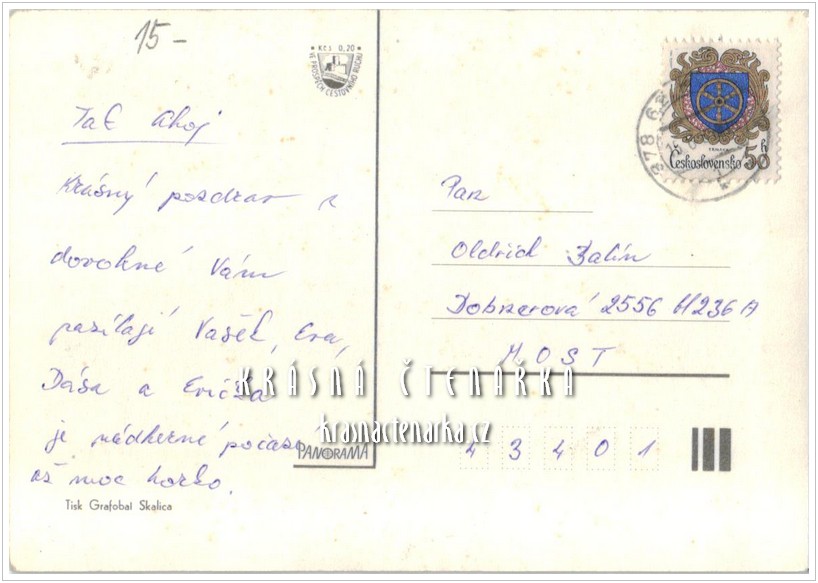 15-
Kčs 0,20
VE PROSPĚCH CESTOVNÍHO RUCHU
Tak Ahoj
Krásný pozdrav z
dovolené Vám
posílají Vašek, Eva,
Dáša a Evička
je nádherné počasí
až moc horko.
PANORAMA
Tisk Grafobal Skalica
378
Československo 50 h
Pan
Oldřich Balín
2556 H236A
MOST
43401
KRÁSNÁ ČTENÁŘKA
krasnactenarka.cz